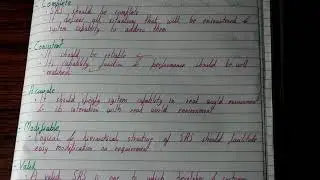 - Complete
- SRS should be complete
- It defines all situation that will be encountered &
system capability to address them
- Consistent
- should be reliable
- Its capability function & performance should be well
matched
- Accurate
- It should specify system capability in real world environment
& its interaction with real world environment
- Modifiable
- Logical & hierarchical structure of SRS should facilitate
easy modification on requirement
- Valid
- A valid SRS is one to which developer & customer